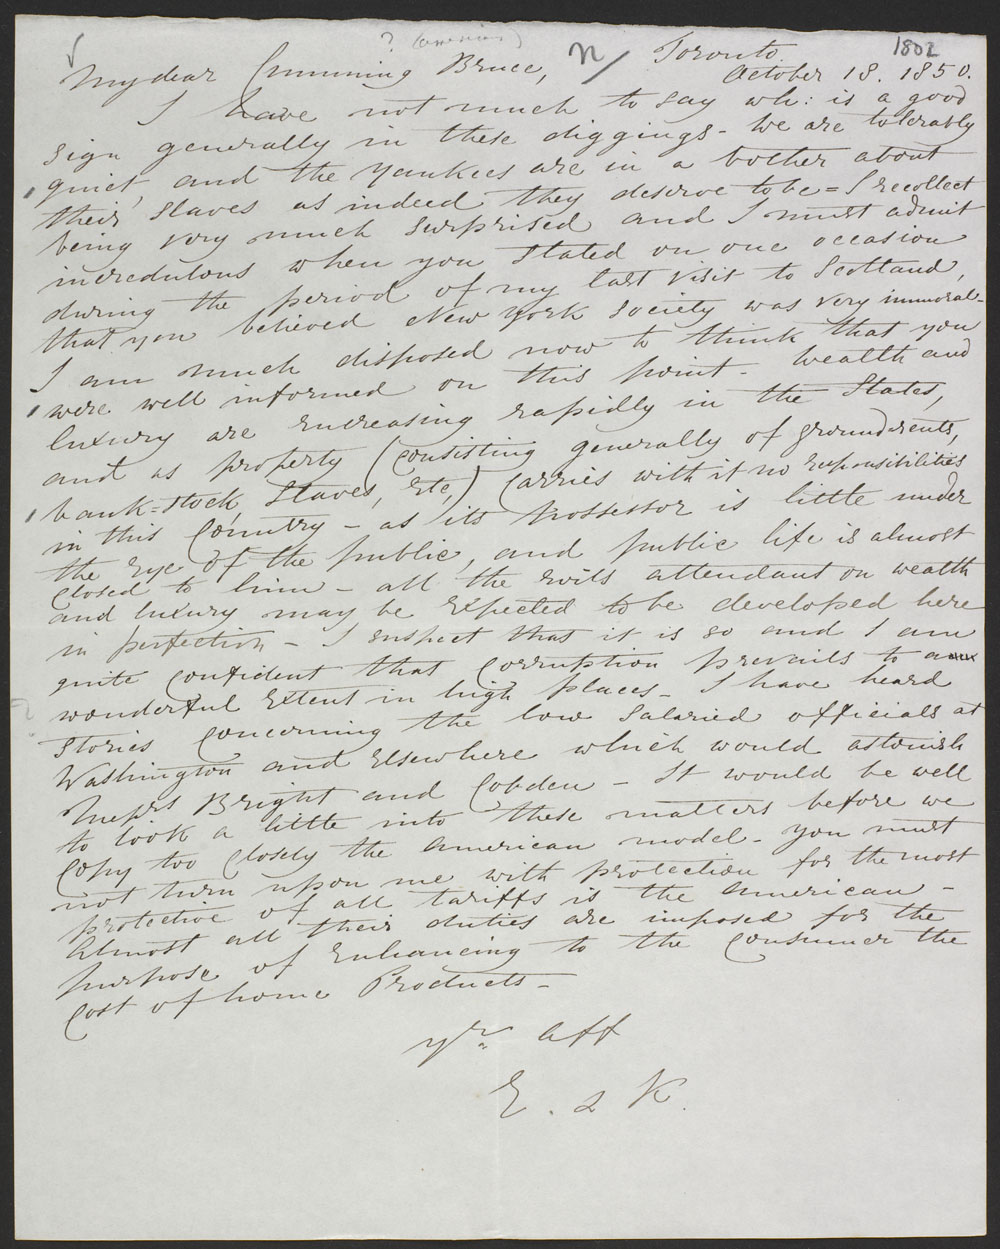 1802
Toronto
My dear Cumming Bruce, October 18. 1850.
I have not much to say wh: is a good
sign generally in these diggings - We are tolerably
quiet, and the Yankees are in a bother about
their slaves as indeed they deserve to be = I recollect
being very much surprised and I must admit
incredulous when you stated on one occasion
during the period of my last visit to Scotland,
that you believed New York society was very immoral -
I am much disposed now to think that you
were well informed on this point - Wealth and
luxury are encreasing rapidly in the States,
and as property (consisting generally of ground-rents,
bank=stock, Slaves, etc,) carries with it no responsibilities
in this Country - as its possessor is little under
the eye of the public, and public life is almost
closed to him - all the evils attendant on wealth
and luxury may be expected to be developed here
in perfection - I suspect that it is so and I am
quite confident that corruption prevails to a
wonderful extent in high places - I have heard
stories concerning the low salaried officials at
Washington and elsewhere which would astonish
Messrs Bright and Cobden - It would be well
to look a little into these matters before we
copy too closely the American model - You must
not turn upon me with protection for the most
protective of all tariffs is the American -
Almost all their duties are imposed for the
purpose of enhancing to the consumer the
cost of home Products -
yr. aff
E. & K.